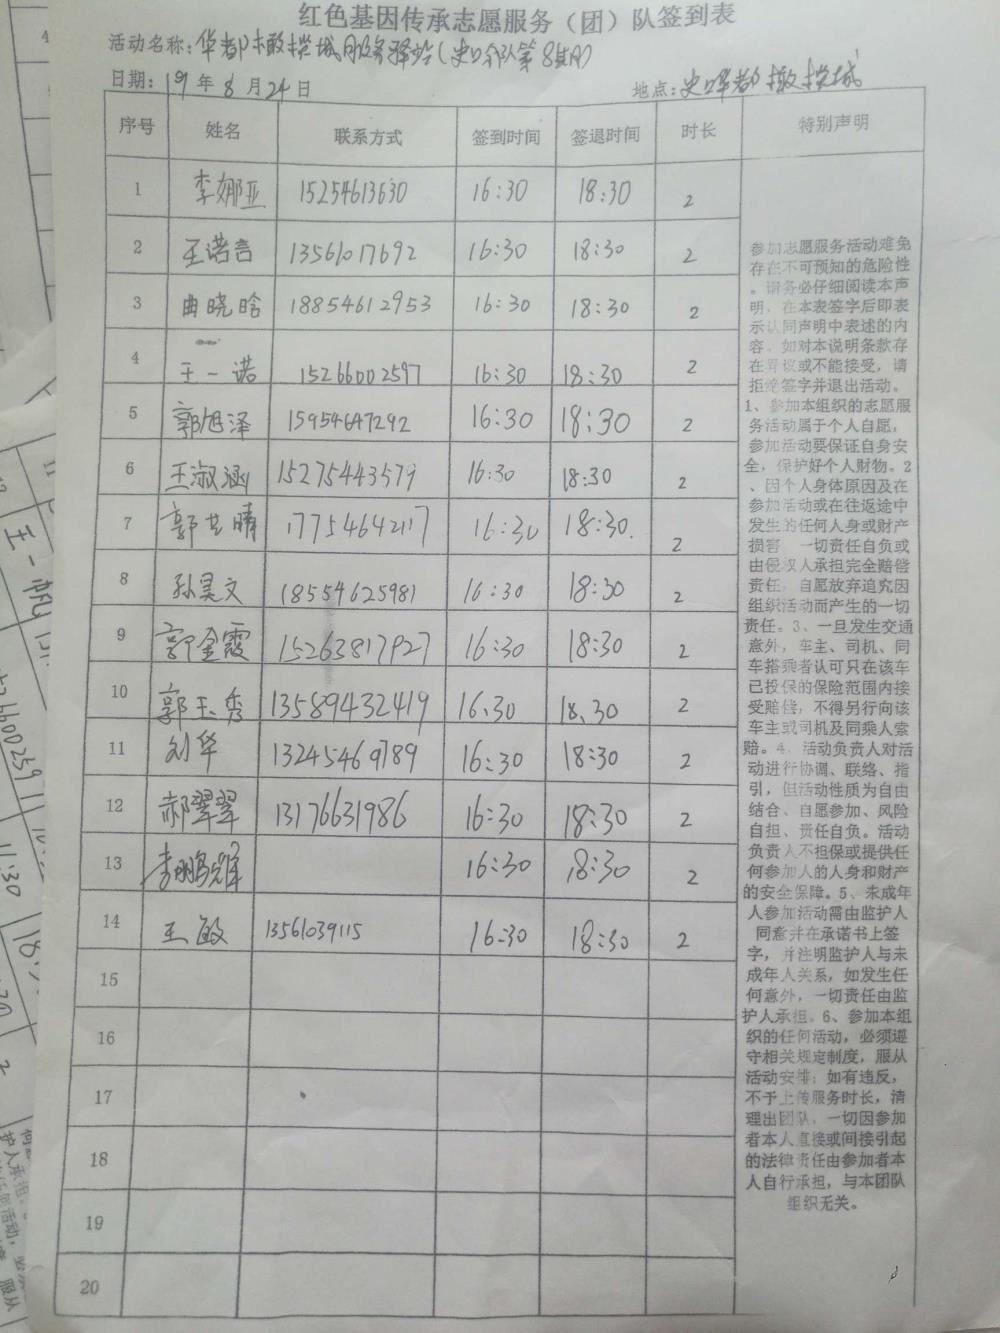 红色基因传承志愿服务（团）队签到表
活动名称：华都橄榄城 服务驿站（史口分队第8期）
日期：19年8月24日 地点：史口华都橄榄城
序号 姓名 联系方式 签到时间 签退时间 时长 特别声明
1 李娜亚 15254613630 16:30 18:30 2
2 王诺言 13561017692 16:30 18:30 2
3 曲晓晗 18854612953 16:30 18:30 2
4 王一诺 15266002597 16:30 18:30 2
5 郭旭泽 15954647292 16:30 18:30 2
6 王淑涵 15275443579 16:30 18:30 2
7 郭艺晴 17754642117 16:30 18:30. 2
8 孙昊文 18554625981 16:30 18:30 2
9 郭金霞 15263817927 16:30 18:30 2
10 郭玉秀 13589432419 16:30 18:30 2
11 刘华 13245469789 16:30 18:30 2
12 郝翠翠 13176631986 16:30 18:30 2
13 李鹏辉 16:30 18:30 2
14 王敏 13561039115 16:30 18:30 2
15
16
17
18
19
20
参加志愿服务活动难免
存在不可预知的危险性
。请务必仔细阅读本声
明，在本表签字后即表
示认同声明中表述的内
容。如对本说明条款存
在异议或不能接受，请
拒绝签字并退出活动。
1、参加本组织的志愿服
务活动属于个人自愿，
参加活动要保证自身安
全，保护好个人财物。2
、因个人身体原因及在
参加活动或在往返途中
发生的任何人身或财产
损害，一切责任自负或
由侵权人承担完全赔偿
责任，自愿放弃追究因
组织活动而产生的一切
责任。3、一旦发生交通
意外，车主、司机、同
车搭乘者认可只在该车
已投保的保险范围内接
受赔偿，不得另行向该
车主或司机及同乘人索
赔。4、活动负责人对活
动进行协调、联络、指
引，但活动性质为自由
结合、自愿参加、风险
自担、责任自负。活动
负责人不担保或提供任
何参加人的人身和财产
的安全保障。5、未成年
人参加活动需由监护人
同意并在承诺书上签
字，并注明监护人与未
成年人关系，如发生任
何意外，一切责任由监
护人承担。6、参加本组
织的任何活动，必须遵
守相关规定制度，服从
活动安排；如有违反，
不予上传服务时长，清
理出团队，一切因参加
者本人直接或间接引起
的法律责任由参加者本
人自行承担，与本团队
组织无关。